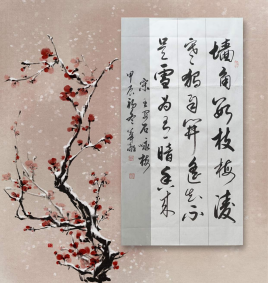 墙角数枝梅凌
寒独自开遥知不
是雪为有暗香来
宋王安石咏梅
甲辰初冬